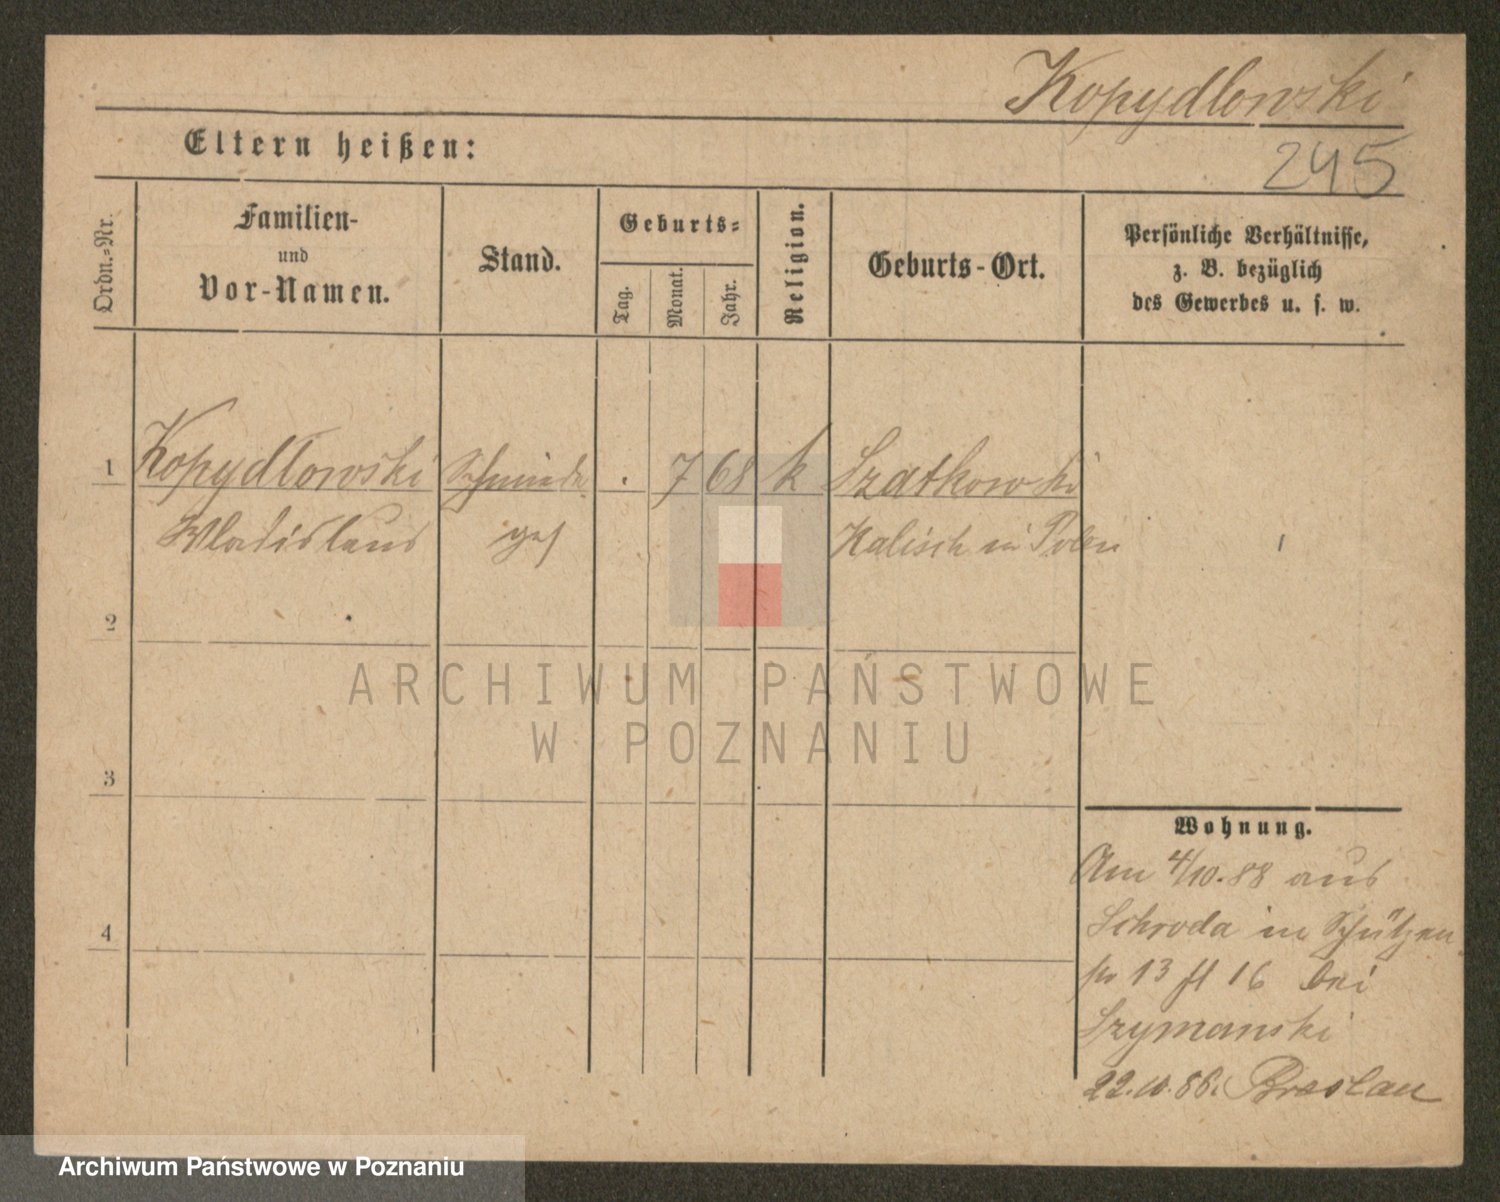 Kopydlowski
Eltern heißen:
245
Ordn.-Nr.
Familien-
und
Vor-Namen.
Stand.
Geburts-
Tag.
Monat.
Jahr.
Religion.
Geburts-Ort.
Persönliche Verhältnisse,
z. B. bezüglich
des Gewerbes u. s. w.
1 Kopydlowski Schmiede . 7 68 k Szatkowski
Wladislaus ges Kalisch in Polen
2
3
4
Wohnung.
Am 4/10. 88 aus
Schroda in Schützen
13 16 bei
Szymanski
22.10.88. Breslau
ARCHIWUM PAŃSTWOWE
W POZNANIU
Archiwum Państwowe w Poznaniu